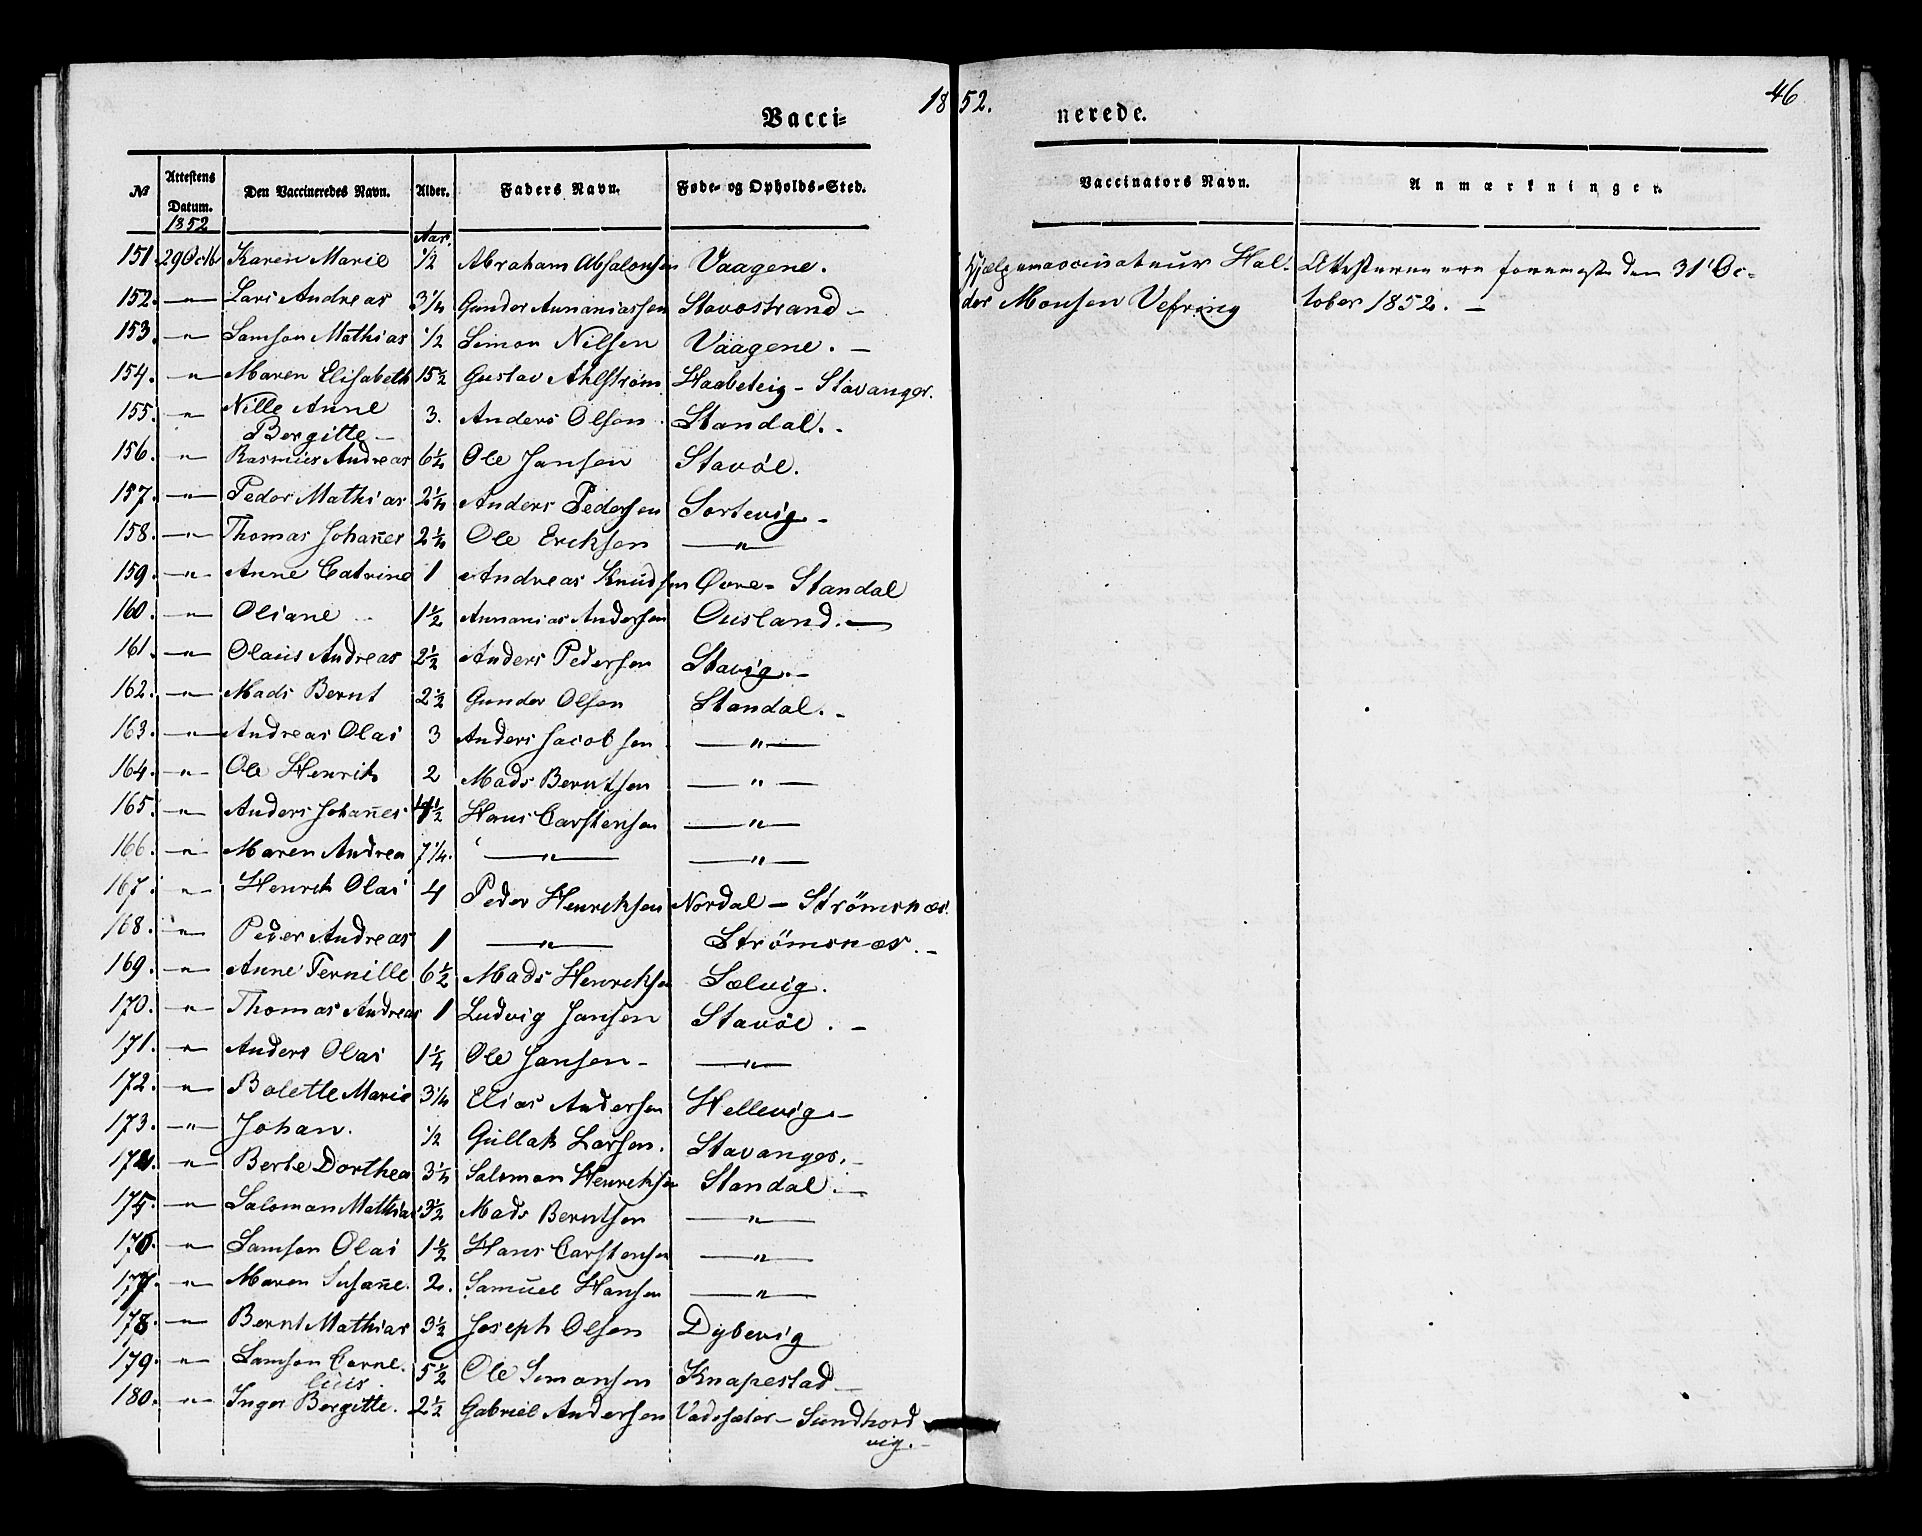 1852. 46
Vaccinerede.
№ Attestens Datum. Den Vaccineredes Navn. Alder. Faders Navn. Føde- og Opholds-Sted. Vaccinators Navn. Anmærkninger.
1852 Aar.
151. 29 Octb Karen Marie 1/2 Abraham Absalonsen Vaagene. Hjælpevaccinateur Hal-
152. —"— Lars Andreas 3 1/4 Gunder Annaniassen Stavostrand —
153. —"— Samson Mathias 1/2 Simon Nilsen Vaagene. —
154. —"— Maren Elisabeth 15 1/2 Gustav Ahlstrøm Haabeteig - Stavanger.
155. —"— Nille Anne 3. Anders Olsen Standal. -
Bergitte —
156. —"— Rasmus Andreas 6 1/2 Ole Jansen Stavöe.
157. —"— Peder Mathias 2 1/4 Anders Pedersen Sortevig. -
158. —"— Thomas Johañes 2 1/2 Ole Ericksen —"—
159. —"— Anne Catrine 1 Andreas Knudsen Øvre- Standal
160. —"— Oliane 1 1/2 Annanias Andersen Ousland. —
161. —"— Olaus Andreas 2 1/2 Anders Pedersen Stavig. -
162. —"— Mads Bernt 2 1/2 Gunder Olsen Standal. -
163. —"— Andreas Olai 3 Anders Jacobsen —"—
164. —"— Ole Henrik 2 Mads Berntsen —"—
165. —"— Anders Johañes 4 1/2 Hans Carstensen —"—
166. —"— Maren Andrea 7 1/4. —"— —"—
167. —"— Henrik Olai 4 Peder Henriksen Nordal - Strömsnæs.
168. —"— Peder Andreas 1 —"— Strömsnæs. -
169. —"— Anne Pernille 6 1/2 Mads Henriksen Sælvig.
170. —"— Thomas Andreas 1 Ludvig Jansen Stavöe. -
171. —"— Anders Olai 1 1/4 Ole Jansen - —"—
172. —"— Bolette Marie 3 1/4 Elias Andersen Hellevig. -
173. —"— Johan. 1/2 Gullak Larsen. Stavanger. -
174. —"— Berte Dorthea 3 1/2 Salomon Henriksen Standal. -
175. —"— Salomon Mathias 3 1/2 Mads Berntsen —"—
176. —"— Samson Olai 1 1/2 Hans Carstensen —"—
177. —"— Maren Susañe. 2. Samuel Hansen —"—
178. —"— Bernt Mathias 3 1/2 Joseph Olsen Dybevig
179. —"— Samson Corne- 5 1/2 Ole Simonsen Knapestad —
lius.
180. —"— Inger Bergitte. 2 1/2 Gabriel Andersen Vadsæter - Sundhord
vig. -
der Monsen Vefring
Attesterne ere foreviste den 31' Oc-
tober 1852. —